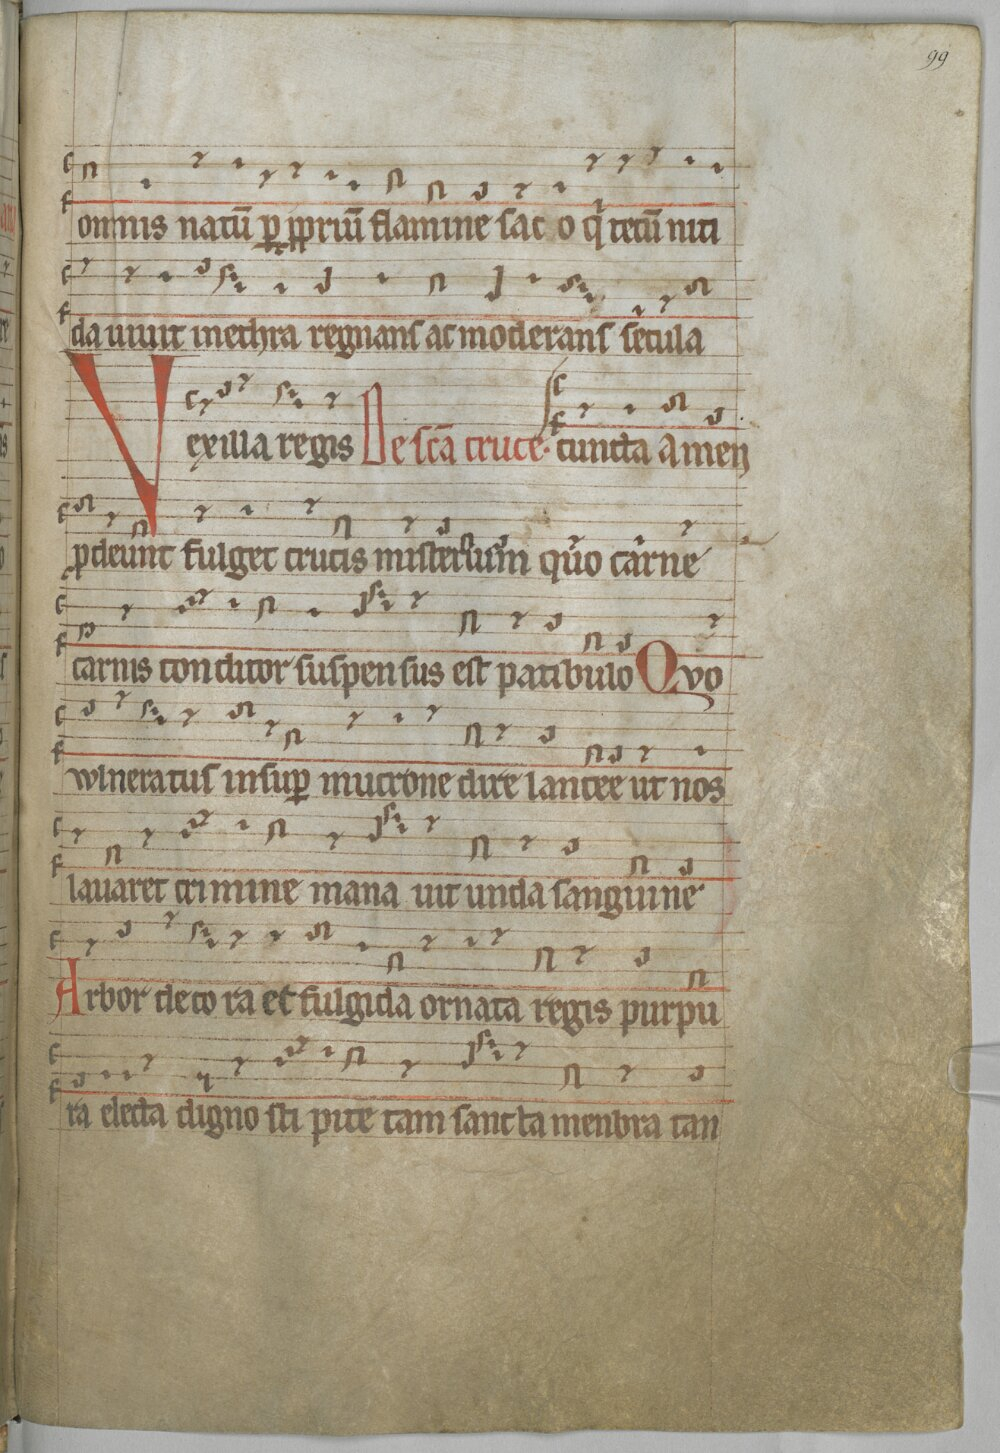 99
omnis natū ꝑ ꝓpriū flamine sac o q̇ tecū niti
da uiuit inethra regnans ac moderans secula
Vexilla regis De scā cruce. cuncta amen
ꝓdeunt fulget crucis misterium quo carne
carnis conditor suspensus est patibulo Quo
wlneratus insuꝑ mucrone dire lancee ut nos
lauaret crimine mana uit unda sanguine
Arbor deco ra et fulgida ornata regis purpu
ra electa digno sti pite tam sancta menbra tan